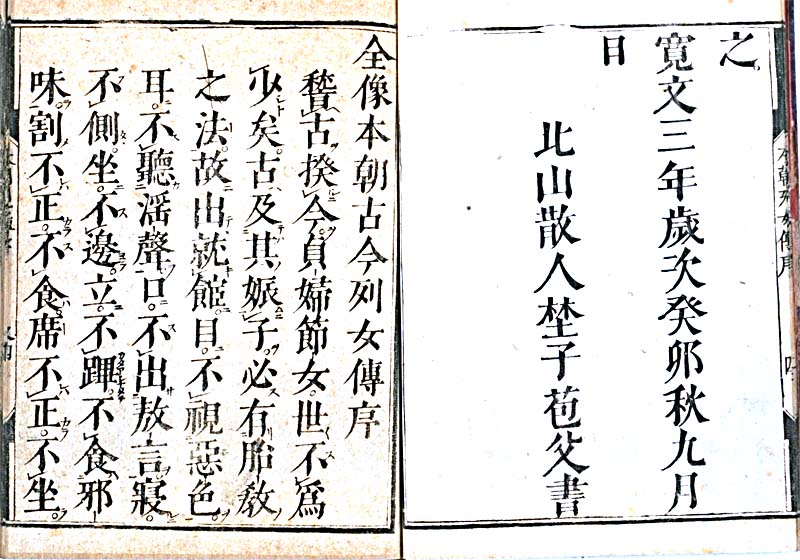 之
寛文三年歳次癸卯秋九月
日
北山散人埜子苞父書
全像本朝古今列女傳序
稽古揆今貞婦節女世不爲
少矣古及其娠子必有胎教
之法故出就館目不視惡色
耳不聽淫聲口不出敖言寢
不側坐不邊立不蹕不食邪
味割不正不食席不正不坐